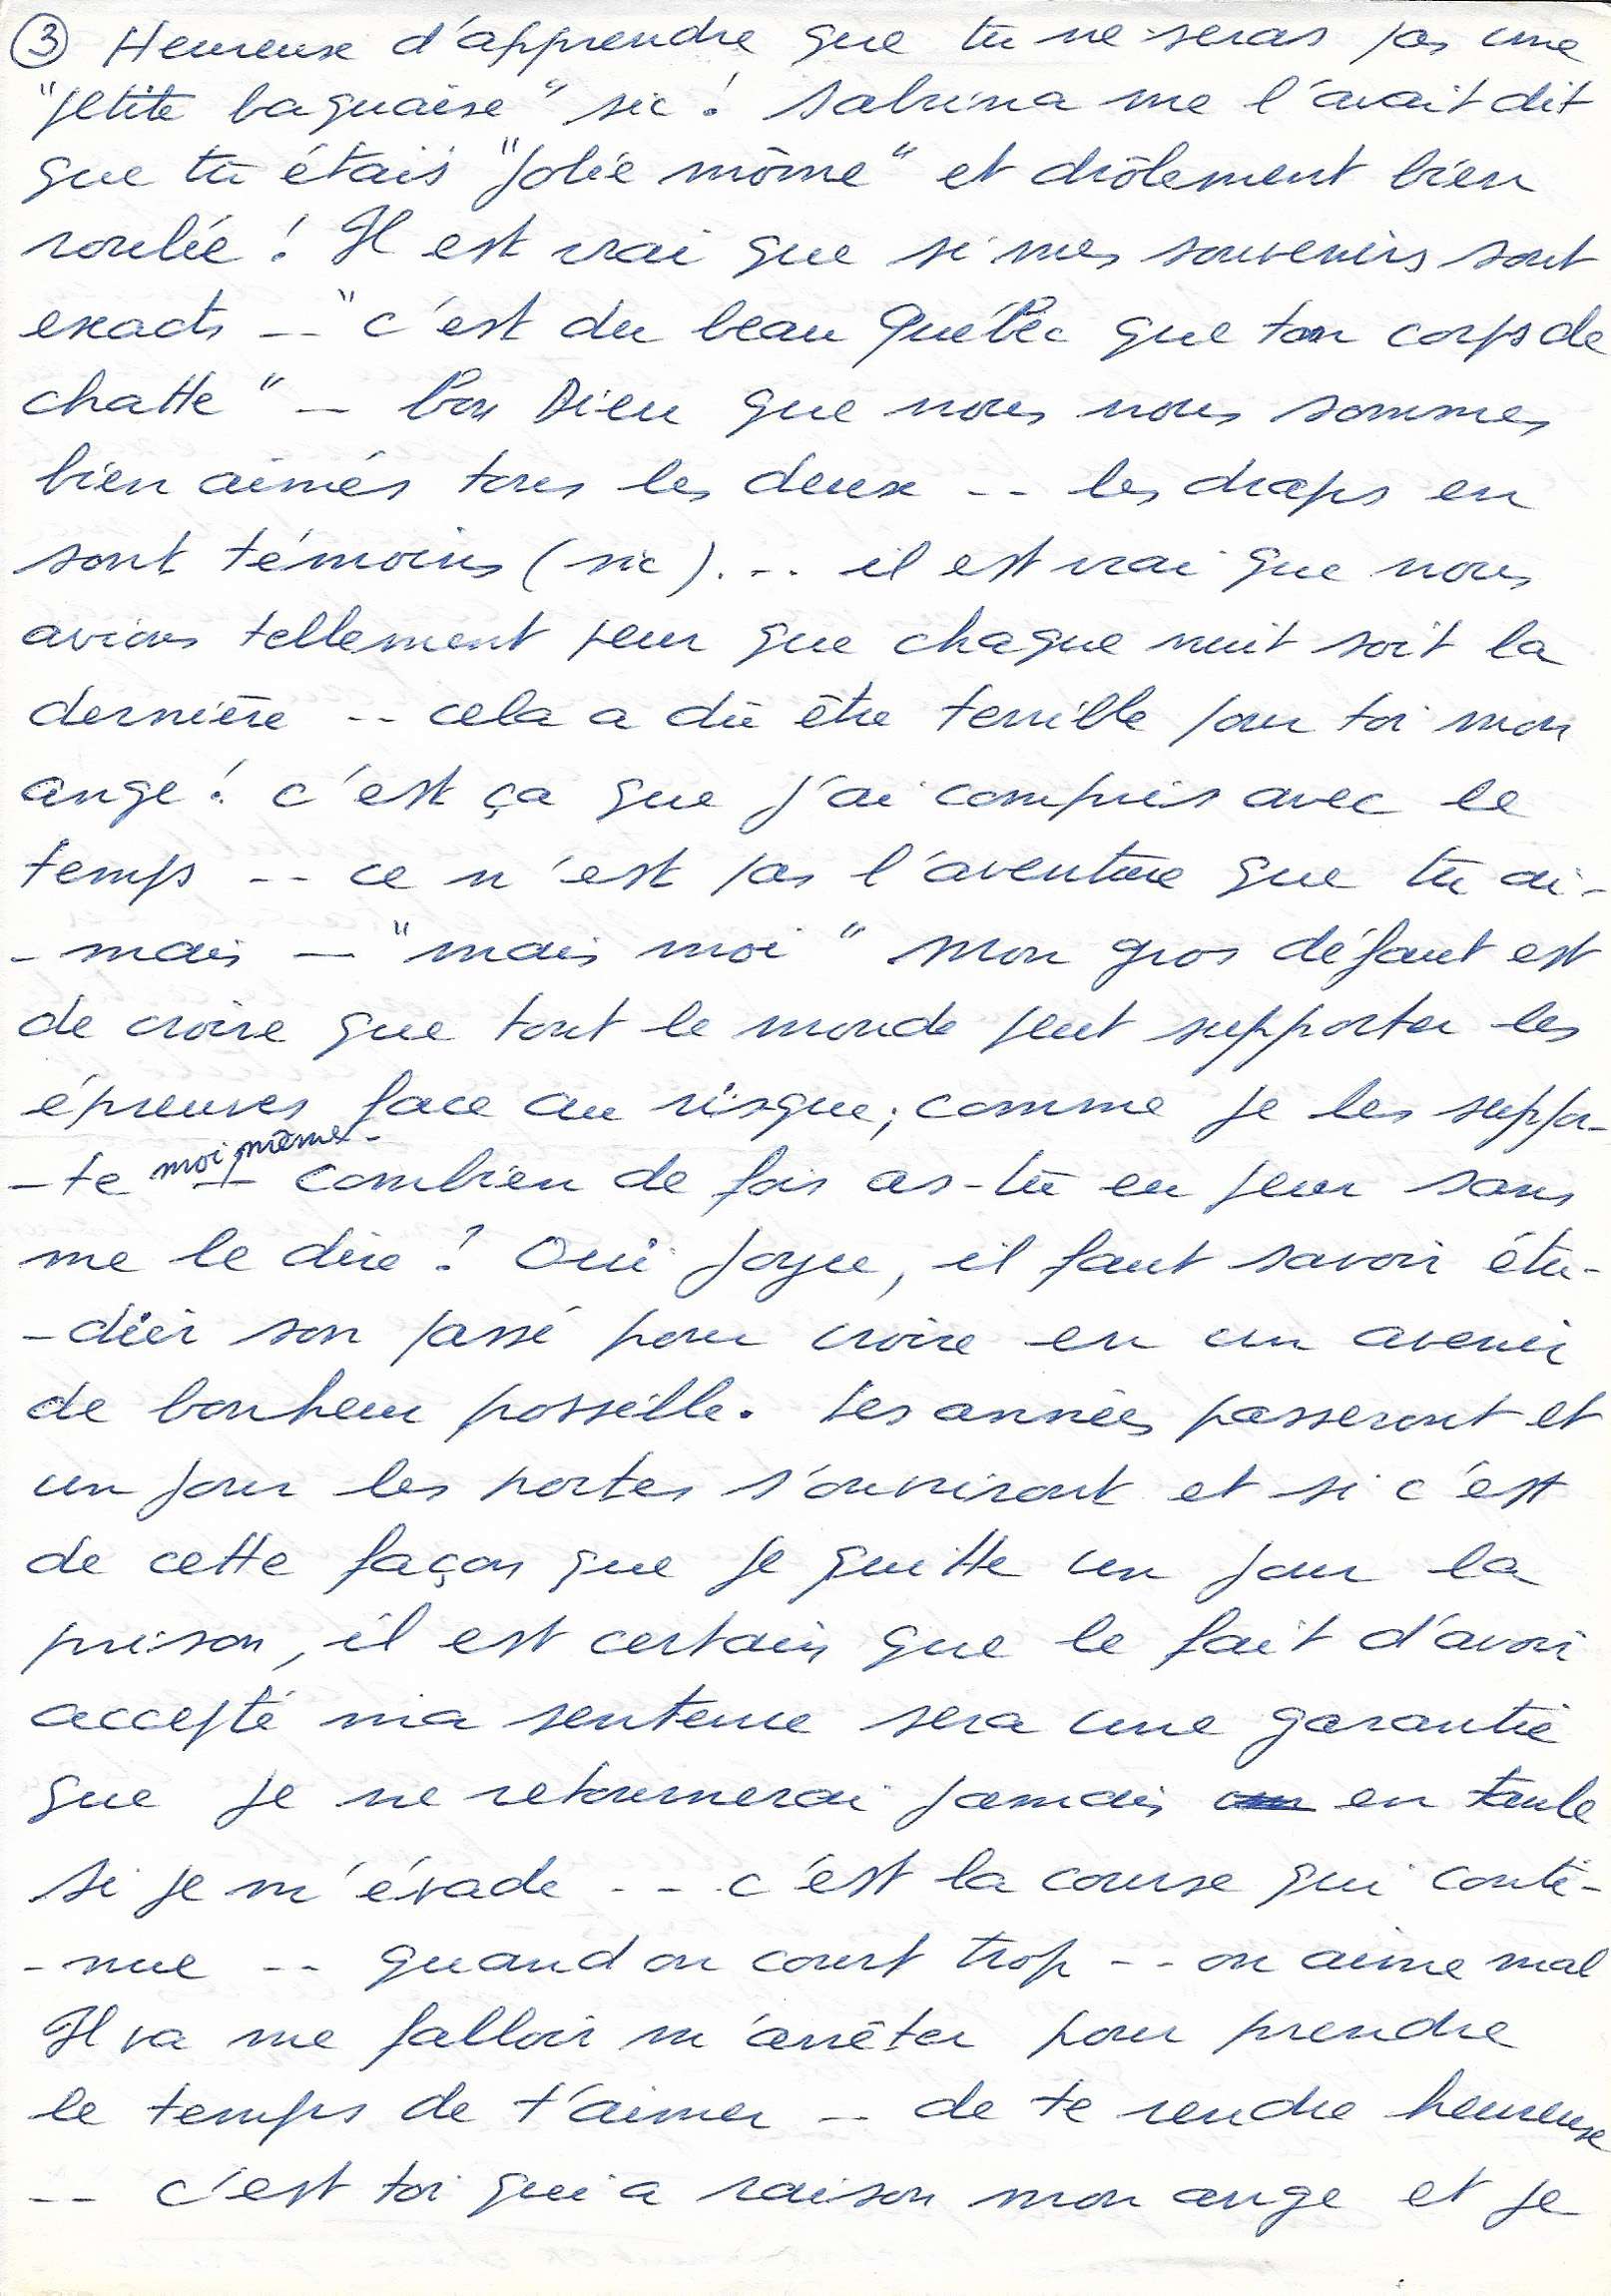 ③ Heureuse d'apprendre que tu ne seras pas une
"petite baquaise" sic ! Sabrina me l'avait dit
que tu étais "jolie môme" et drôlement bien
roulée ! Il est vrai que si mes souvenirs sont
exacts -- "c'est du beau Québec que ton corps de
chatte" -- bon Dieu que nous nous sommes
bien aimés tous les deux -- les draps en
sont témoins (sic). -- il est vrai que nous
avions tellement peur que chaque nuit soit la
dernière -- cela a dû être terrible pour toi mon
ange ! c'est ça que j'ai compris avec le
temps -- ce n'est pas l'aventure que tu ai-
-mais -- "mais moi" Mon gros défaut est
de croire que tout le monde peut supporter les
épreuves face au risque, comme je les suppor-
-te moi même - -- combien de fois as-tu eu peur sans
me le dire ? Oui Joyce, il faut savoir étu-
-dier son passé pour croire en un avenir
de bonheur possible. Les années passeront et
un jour les portes s'ouvriront et si c'est
de cette façon que je quitte un jour la
prison, il est certain que le fait d'avoir
accepté ma sentence sera une garantie
que je ne retournerai jamais en taule
si je m'évade -- c'est la course qui conti-
-nue -- quand on court trop -- on aime mal
Il va me falloir m'arrêter pour prendre
le temps de t'aimer -- de te rendre heureuse
-- c'est toi qui a raison mon ange et je